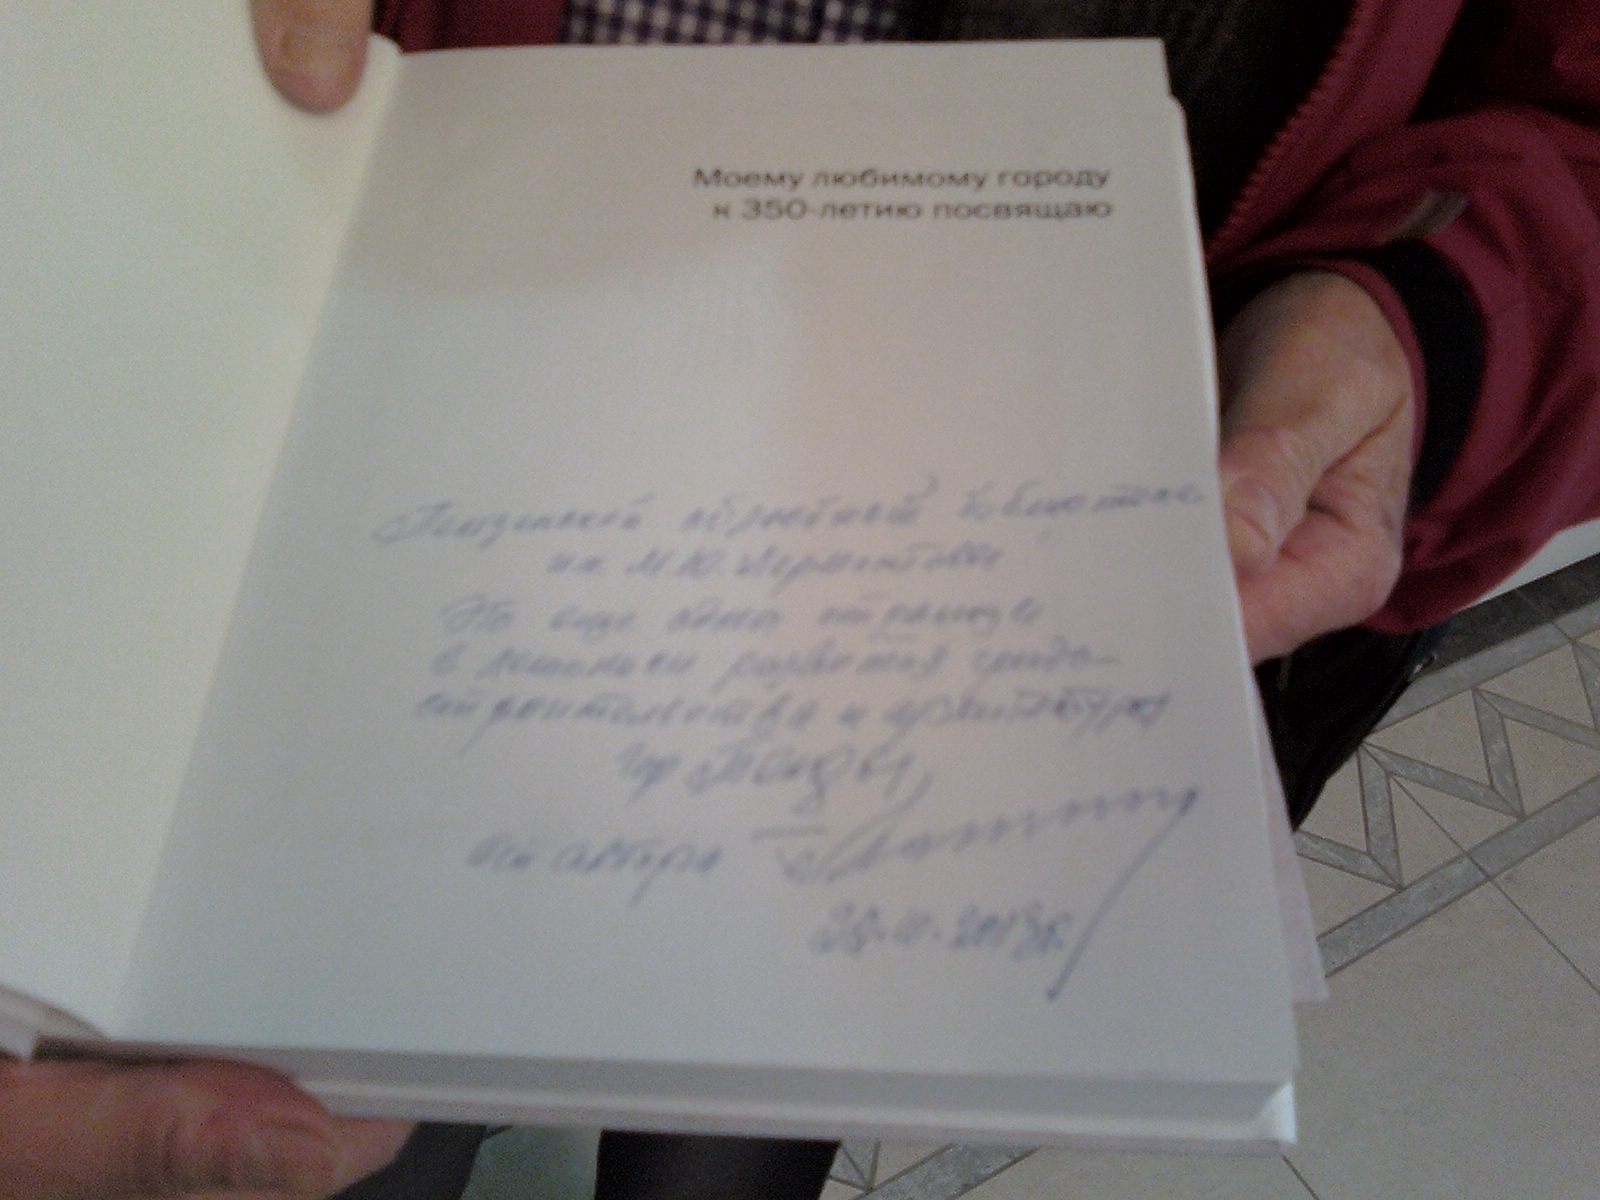 Моему любимому городу
к 350-летию посвящаю
Пензенской областной библиотеке
им. М.Ю. Лермонтова.
Это еще одна страница
в летописи развития градо-
строительства и архитектуры
гор. Пензы,
от автора